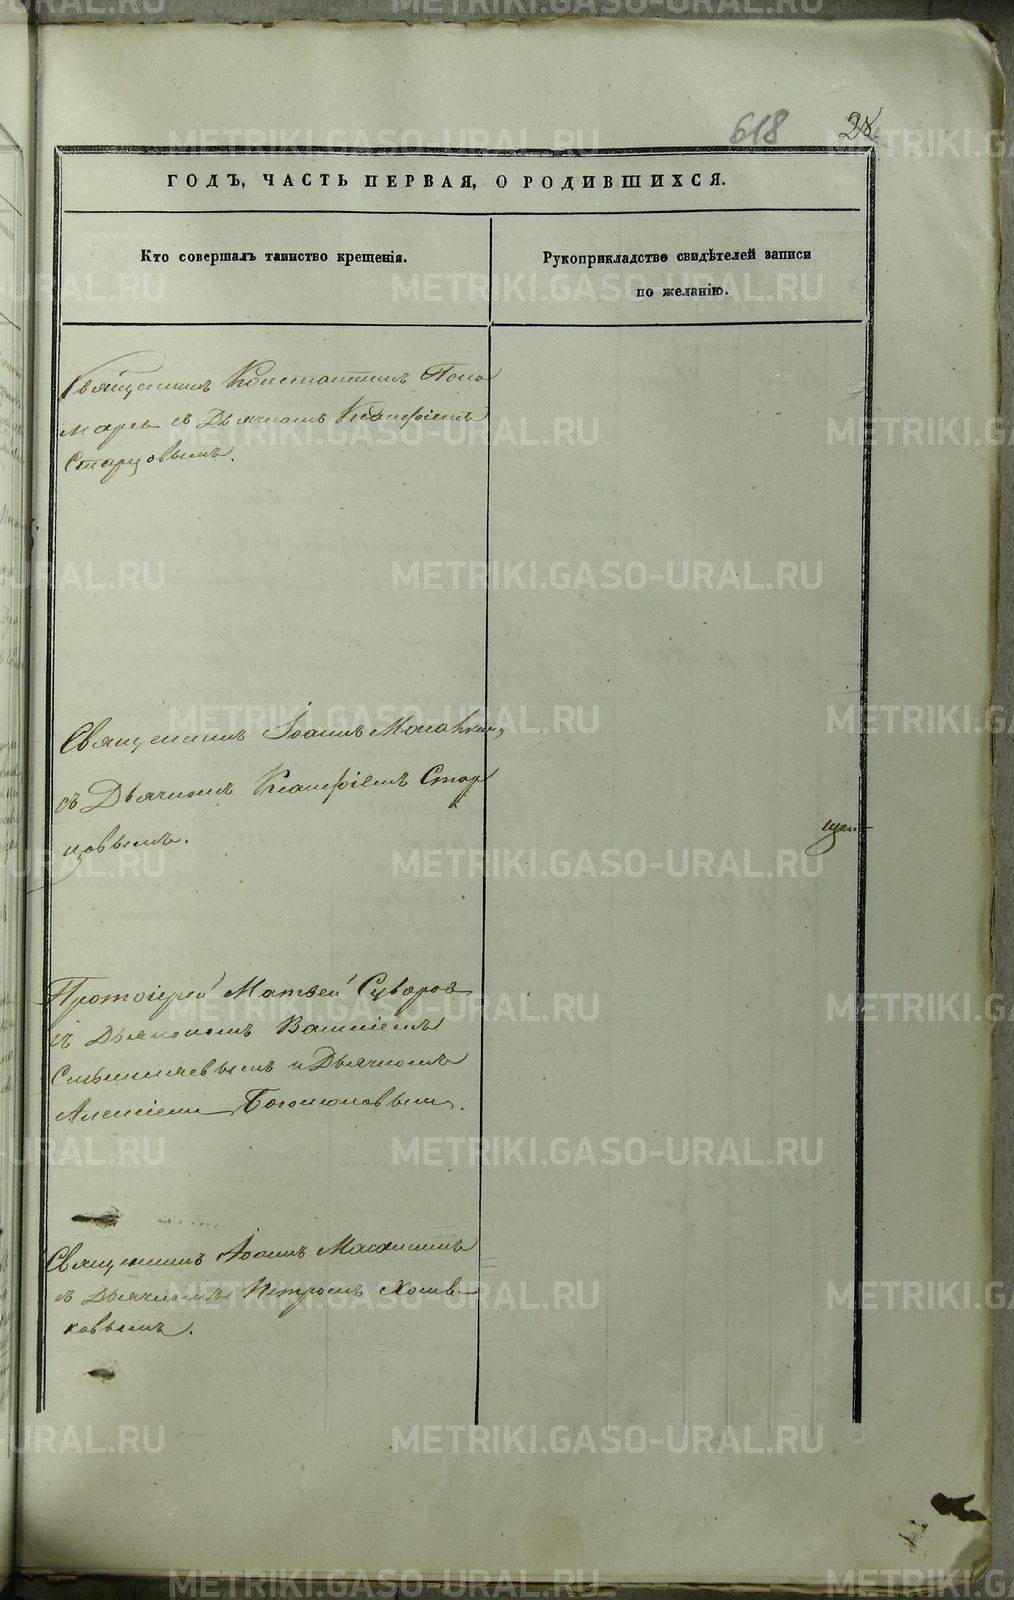 618 28
ГОДЪ, ЧАСТЬ ПЕРВАЯ, О РОДИВШИХСЯ.
Кто совершалъ таинство крещенія.
Рукоприкладство свидѣтелей записи
по желанію.
Священникъ Константинъ Поно
маревъ съ Дьячкомъ
Старцовымъ.
Священникъ Іоаннъ
съ Дьячкомъ Стар
цовымъ.
Протоіерей Матвей Суворовъ
съ Дьякономъ
и Дьячкомъ
Алексіемъ Богомоловымъ.
Священникъ Іоаннъ
съ Дьячкомъ Петромъ Хомя
ковымъ.
METRIKI.GASO-URAL.RU